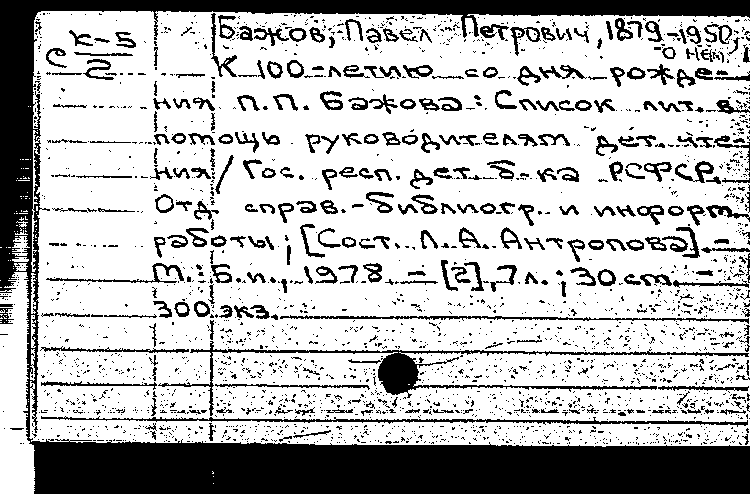 Бажов, Павел Петрович, 1879-1950,
о нем.
С К-5
2
К 100-летию со дня рожде-
ния П.П. Бажова: Список лит. в
помощь руководителям дет. чте-
ния / Гос. респ. дет. б-ка РСФСР.
Отд. справ.-библиогр. и информ.
работы; [Сост. Л.А. Антропова]. -
М.: Б.и., 1978. - [2], 7 л.; 30 см. -
300 экз.